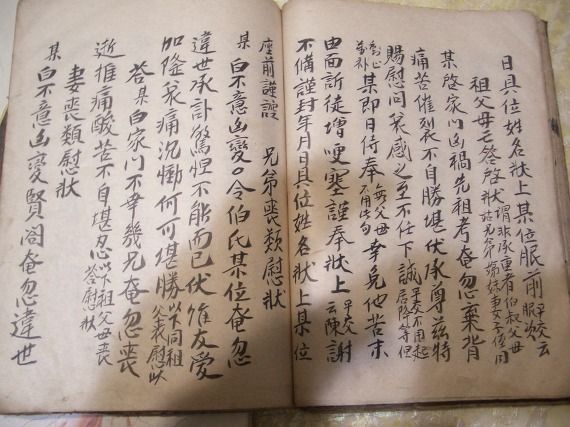 日具位姓名狀上某位服前平交云服次
祖父母亡答啓狀謂非承重者伯叔父母姑兄弟姊妹妻子侄同
某啓家門凶禍先祖考奄忽棄背
痛苦催裂不自勝堪伏承尊慈特
賜慰問哀感之至不任下誠平交不用起居隆等但
某即日侍奉無父母不用此句幸免他苦未
由面訴徒增哽塞謹奉狀上平交云陳謝
不備謹封年月日具位姓名狀上某位
座前謹謹 兄弟喪類慰狀
某白不意凶變〇令伯氏某位奄忽
違世承訃驚怛不能而已伏惟友愛
加隆哀痛沉慟何可堪勝以下同祖父喪慰狀
答某白家門不幸幾兄奄忽喪
逝推痛酸苦不自堪忍以祖父母喪答慰狀
妻喪類慰狀
某白不意凶變賢閤奄忽違世